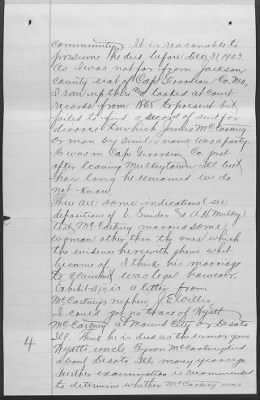 community. It is reasonable to
presume she died before Dec 31, 1903.
As I was not far from Jackson
county seat of Cape Girardeau Co. Mo,
I ran up there and looked at court
records from 1865 to present but
failed to find a record of suit for
divorce to which James McCartney
or man by similar name was a party.
He was in Cape Girardeau Co. just
after leaving Mulkeytown Ill but
how long he remained we do
not know.
There are some indications (see
deposition of V. Snider & A H Mulkey)
that McCartney married some
woman other than the ones which
the evidence herewith shows what
became of. I think his marriage
to claimant was legal however.
Exhibit is a letter from
McCartneys nephew J E Willis
I could get no trace of Wyatt
McCartney at Mound City or Desoto
Ill. Think he is dead as the rumor goes
Wyatts uncle Byron McCartney died
about Desoto Ill many years ago
Further examination is recommended
to determine whether McCartney was
4